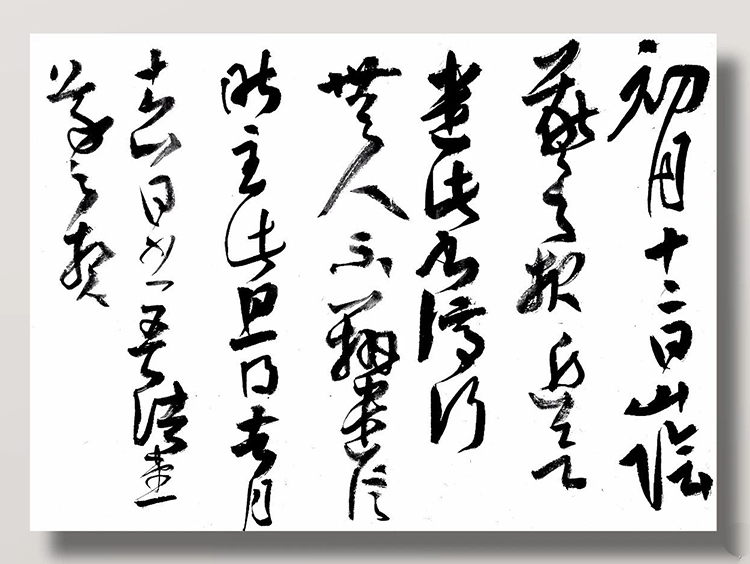 初月十二日山陰
羲之報近欲
遣此書停行
無人不辦遣信
昨至此且得去月
十六日書
羲之報